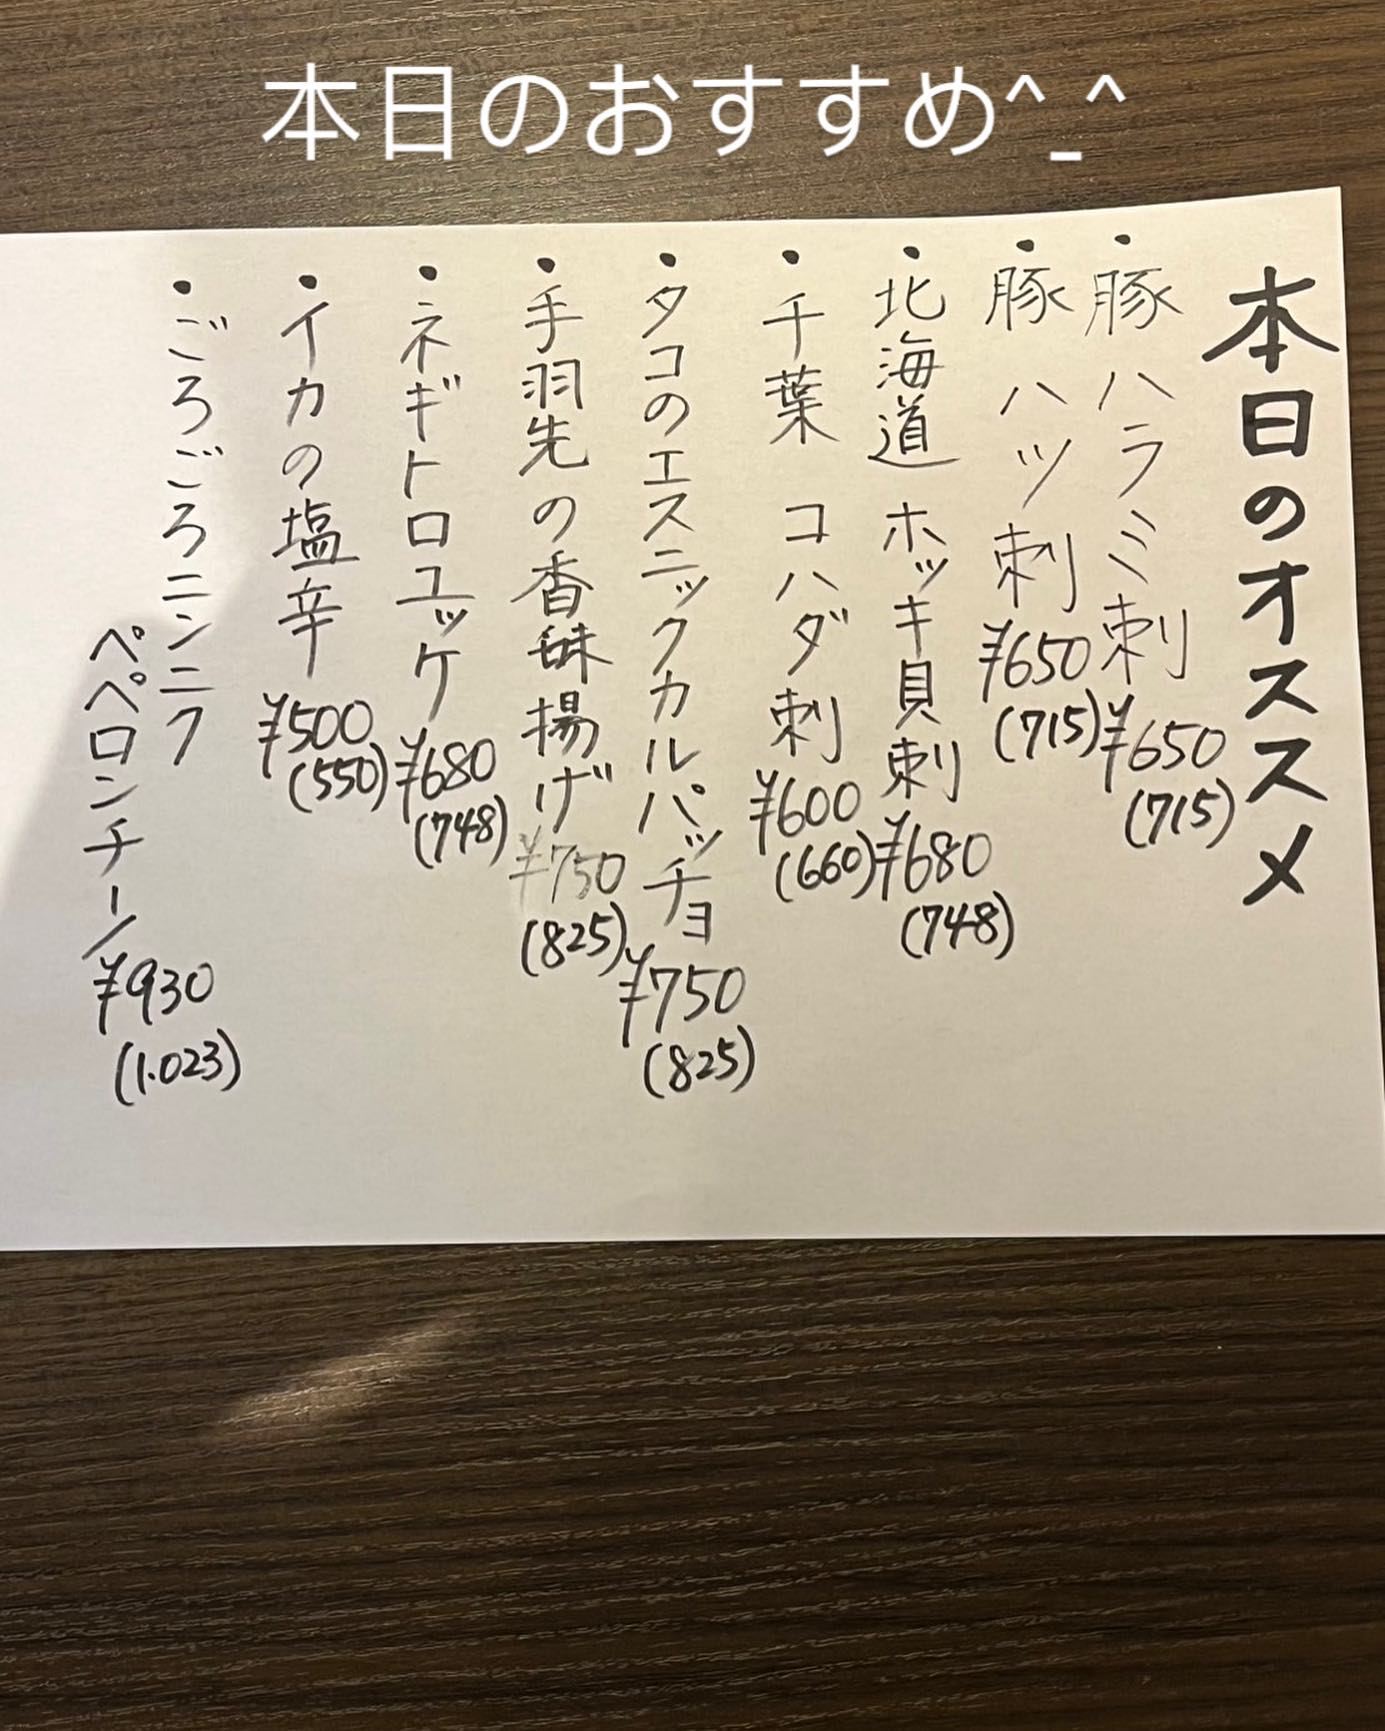 本日のおすすめ^_^
本日のオススメ
・豚ハラミ刺¥650(715)
・豚ハツ刺¥650(715)
・北海道 ホッキ貝刺¥680(748)
・千葉 コハダ刺¥600(660)
・タコのエスニックカルパッチョ¥750(825)
・手羽先の香味揚げ¥750(825)
・ネギトロユッケ¥680(748)
・イカの塩辛¥500(550)
・ごろごろニンニク
ペペロンチーノ¥930(1.023)